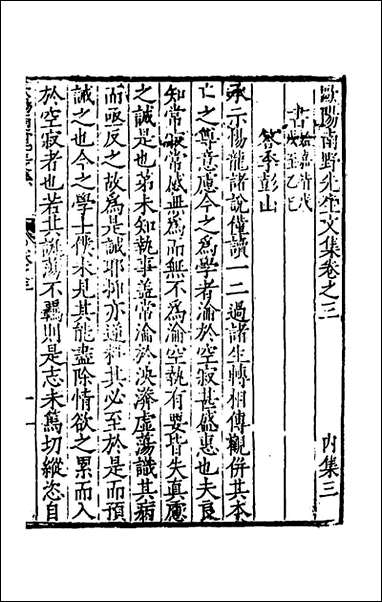 歐陽南野先生文集卷之三 內集三
書
答季彭山
承示惕龍諸說僅讀一二過諸生轉相傳觀併其本
亡之尊意慮今之為學者淪於空寂甚盛惠也夫良
知常寂常感無為而無不為淪空執有要皆失真應
之誠是也第未知執事蓋常淪於泱漭虛蕩識其病
而亟反之故為是誡耶抑亦逆料其必至於是而預
誡之也今之學士僕未見其能盡除情欲之累而入
於空寂者也若其議蕩不羈則是志未篤切縱恣自